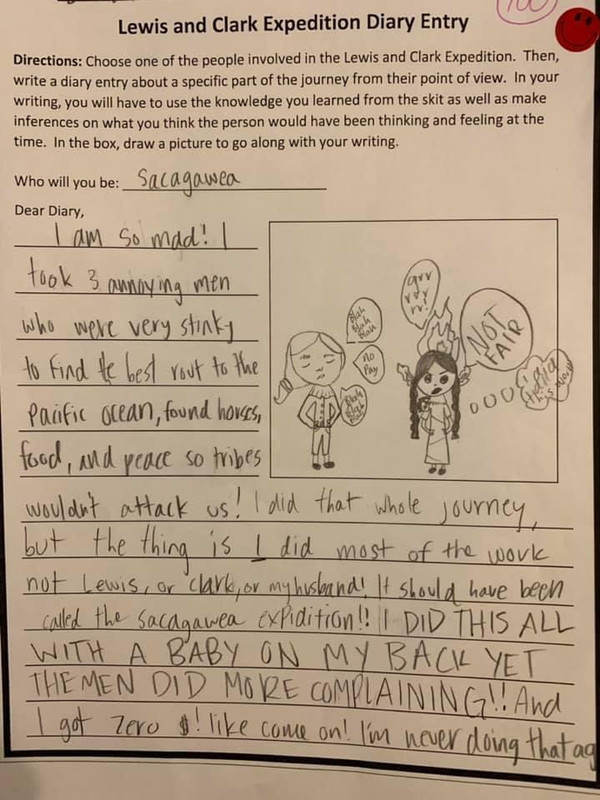 100
Lewis and Clark Expedition Diary Entry
Directions: Choose one of the people involved in the Lewis and Clark Expedition. Then,
write a diary entry about a specific part of the journey from their point of view. In your
writing, you will have to use the knowledge you learned from the skit as well as make
inferences on what you think the person would have been thinking and feeling at the
time. In the box, draw a picture to go along with your writing.
Who will you be: Sacagawea
Dear Diary,
I am so mad! I
took 3 annoying men
who were very stinky
to find the best rout to the
Pacific ocean, found horses,
food, and peace so tribes
Blah
blah
blah
No
Pay
Blah
blah
blah
grr
rrr
rr!
NOT
FAIR
i did
wouldn't attack us! I did that whole journey,
but the thing is I did most of the work
not Lewis, or Clark, or my husband! It should have been
called the Sacagawea expidition!! I DID THIS ALL
WITH A BABY ON MY BACK YET
THE MEN DID MORE COMPLAINING!! And
I got zero $! like come on! I'm never doing that ag